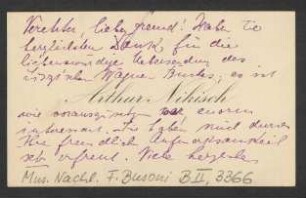 Verehrter, lieber Freund! Haben Sie
herzlichsten Dank für die
liebenswürdige Uebersendung des
Wagner Buches; es ist
Arthur Nikisch
enorm
interessant. Sie haben mich durch
Ihre freundliche Aufmerksamkeit
sehr erfreut. Viele herzliche
Mus. Nachl. F. Busoni B II, 3366